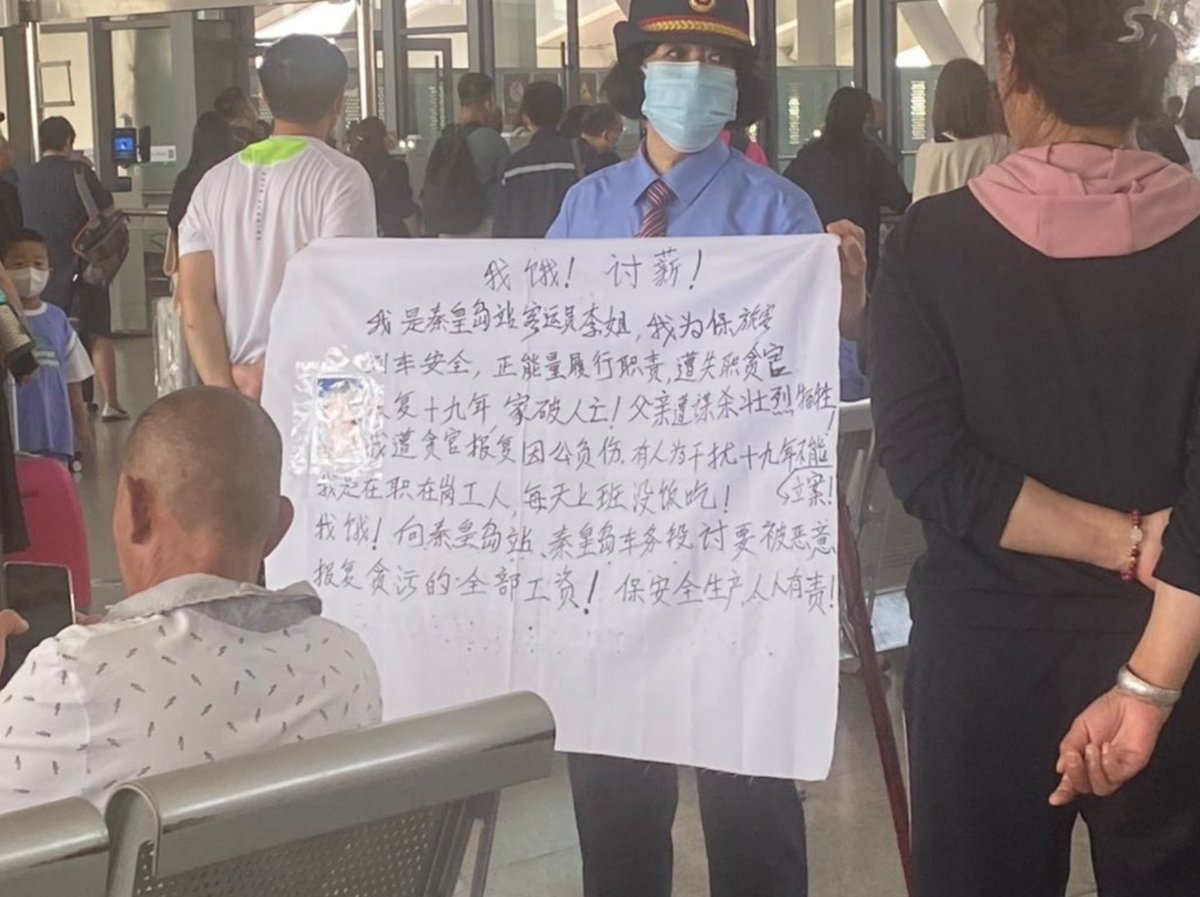 我饿！讨薪！
我是秦皇岛站客运员李姐，我为保旅客
列车安全，正能量履行职责，遭失职贪官
复十九年，家破人亡！父亲遭谋杀壮烈牺牲！
我遭贪官报复因公负伤，有人为干扰十九年不能
立案！
我是在职在岗工人，每天上班没饭吃！
我饿！向秦皇岛站、秦皇岛车务段讨要被恶意
报复贪污的全部工资！保安全生产，人人有责！